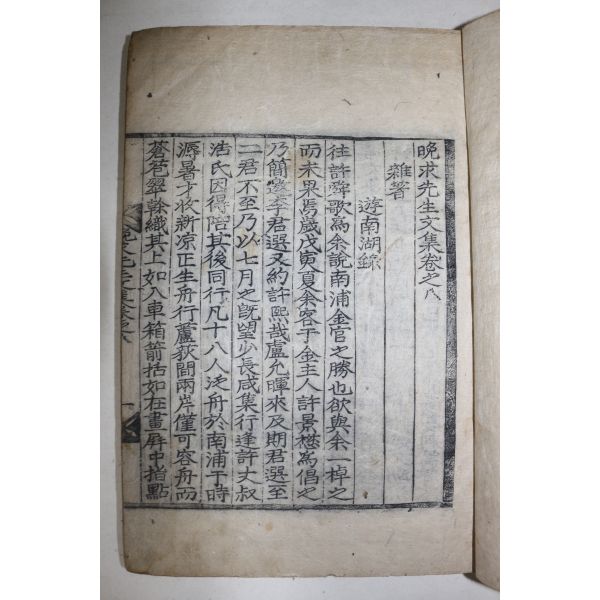 晩求先生文集卷之八
雜著
遊南湖錄
往許舜歌爲余說南浦金官之勝也欲與余一棹之
而未果焉歲戊寅夏余客于金主人許景懋爲倡之
乃簡邀李君選又約許熙哉盧允暉來及期君選至
二君不至乃以七月之旣望少長咸集行逢許丈叔
浩氏因得陪其後同行凡十八人泛舟於南浦于時
溽暑才收新凉正生舟行蘆荻間兩岸僅可容舟而
蒼苞翠幹織其上如入車箱箭括如在畫屛中指點